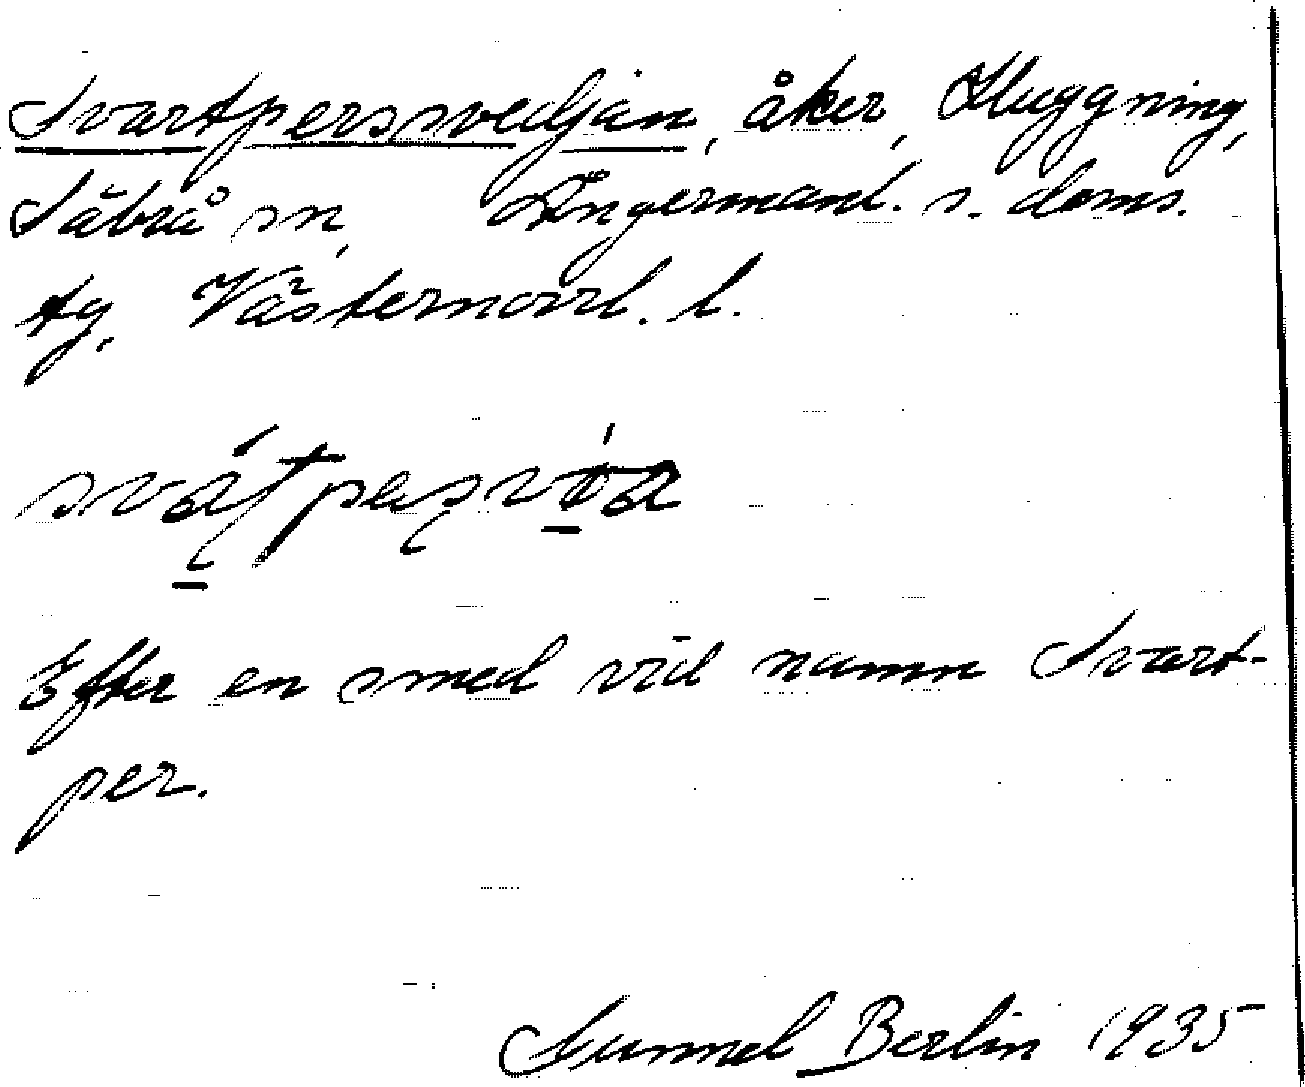 Svartperssvedjan, åker, Kluggning,
Säbrå sn, Ångermanl. s. doms.
tg, Västernorrl. l.
Efter en smed vid namn Svart-
per.
Gunnel Berlin 1935